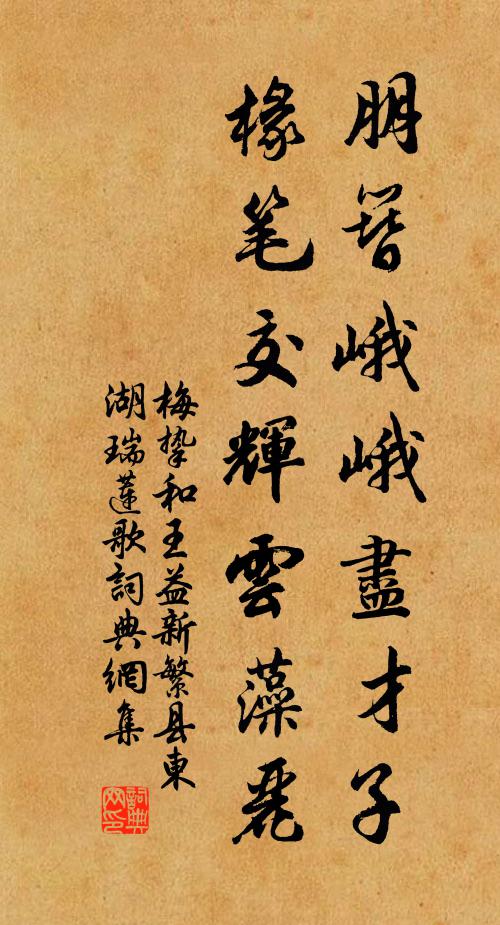 朋簪峨峨盡才子
椽笔交輝雲藻麗
梅挚和王益新繁县東
湖瑞蓮歌詞典網集
詞典網印